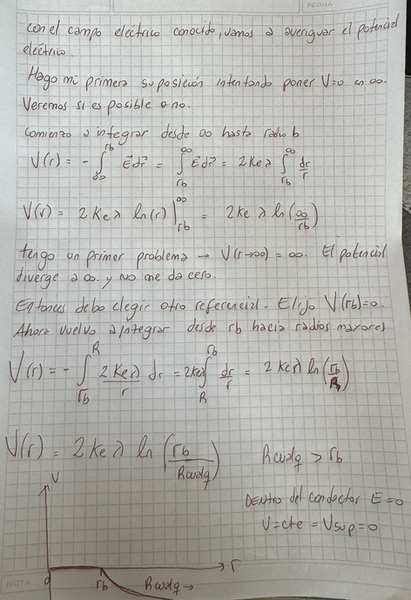 FECHA
con el campo eléctrico conocido, vamos a averiguar el potencial
eléctrico.
Hago mi primera suposición intentando poner V=0 en ∞.
Veremos si es posible o no.
Comienzo a integrar desde ∞ hasta radio b
V(r) = - ∫_∞^rb E⃗dr⃗ = ∫_rb^∞ E⃗dr⃗ = 2Keλ ∫_rb^∞ dr/r
V(r) = 2Keλ ln(r) |_rb^∞ = 2Keλ ln(∞/rb)
tengo un primer problema → V(r→∞) = ∞. El potencial
diverge a ∞ y no me da cero.
Entonces debo elegir otro referencial. Elijo V(rb)=0.
Ahora vuelvo a integrar desde rb hacia radios mayores
V(r) = - ∫_rb^R 2Keλ/r dr = 2Keλ ∫_R^rb dr/r = 2Keλ ln(rb/R)
V(r) = 2Keλ ln(rb/Rcualq) Rcualq > rb
DENTRO del conductor E=0
V=cte = Vsup=0
V
0
r
rb
Rcualq →
NOTA